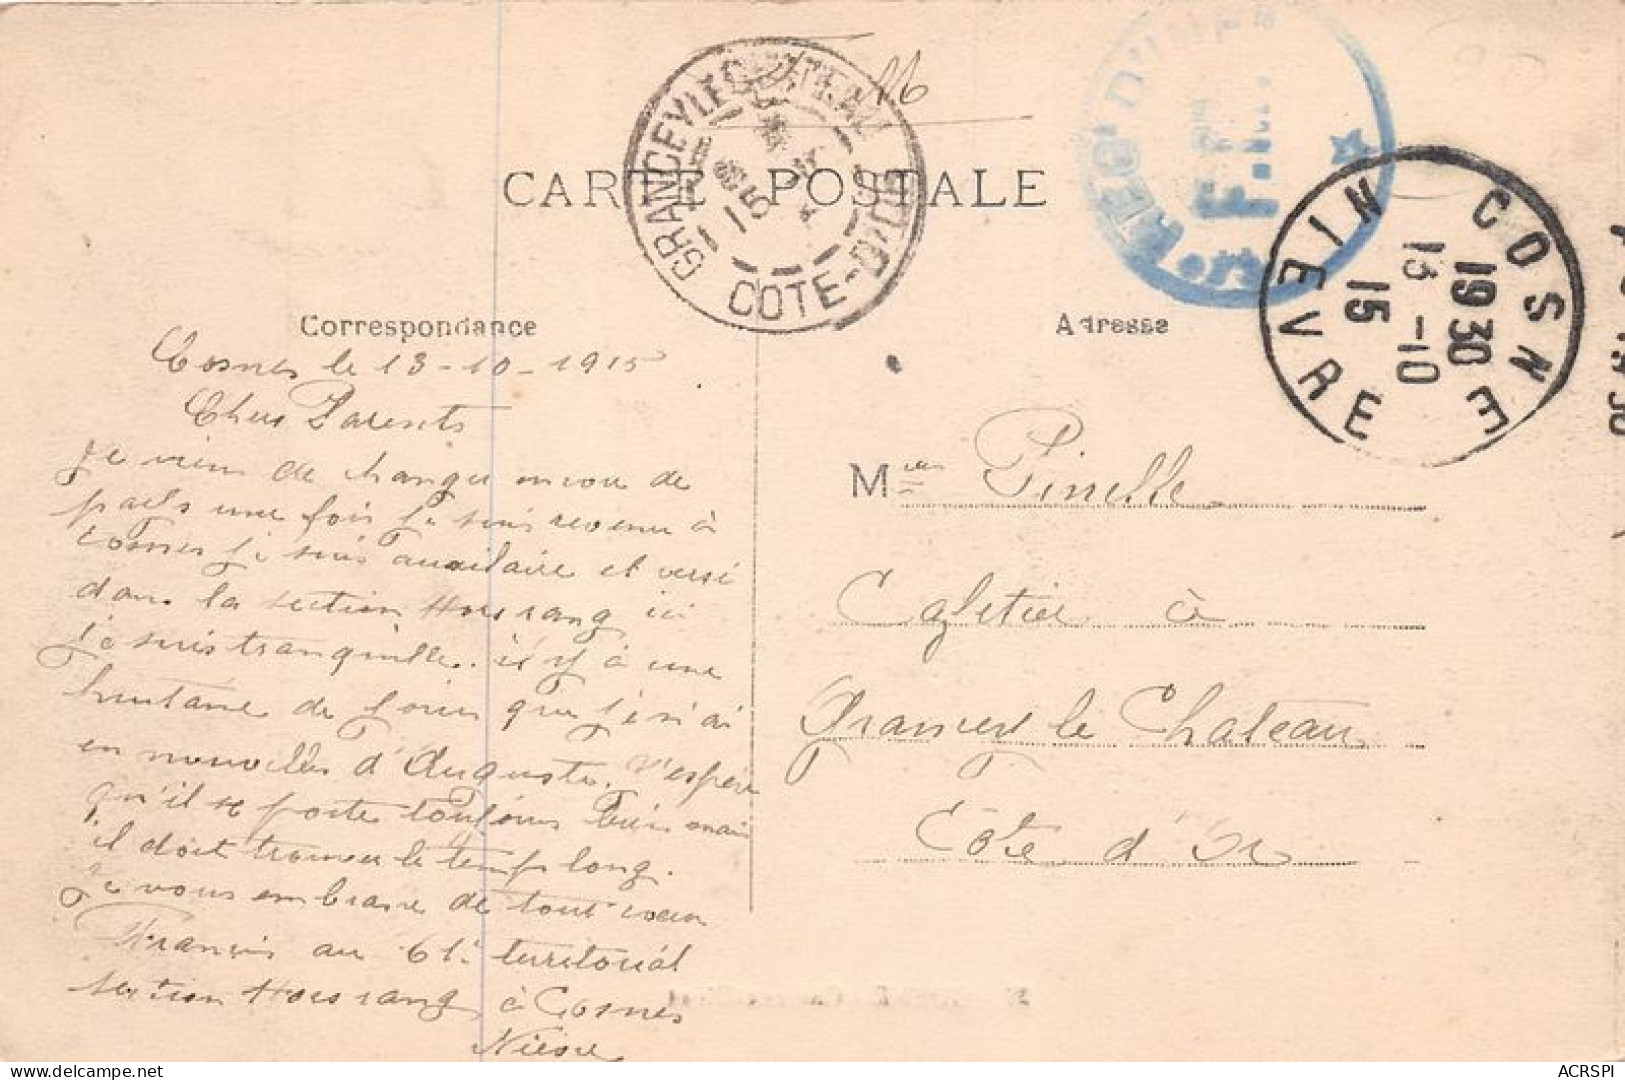 116
CARTE POSTALE
GRANCEY-LE-CHATEAU
COTE-D'OR
15
COSNE
19 30
13 -10
15
NIEVRE
Correspondance
Adresse
Cosnes le 13-10-1915
Chers Parents
Je viens de changer encore de
pays une fois je suis revenu à
Cosnes je suis auxilaire et versé
dans la section Hors rang ici
je suis tranquille. il y à une
huitaine de jours que je n'ai
eu nouvelles d'Auguste. J'espère
qu'il se porte toujours bien mais
il doit trouver le temps long.
Je vous embrasse de tout coeur
François au 61e territorial
section Hors rang à Cosnes
Nièvre
Pinelle
Cafetier à
Grancey le Chateau
Côte d'Or
ACRSPI